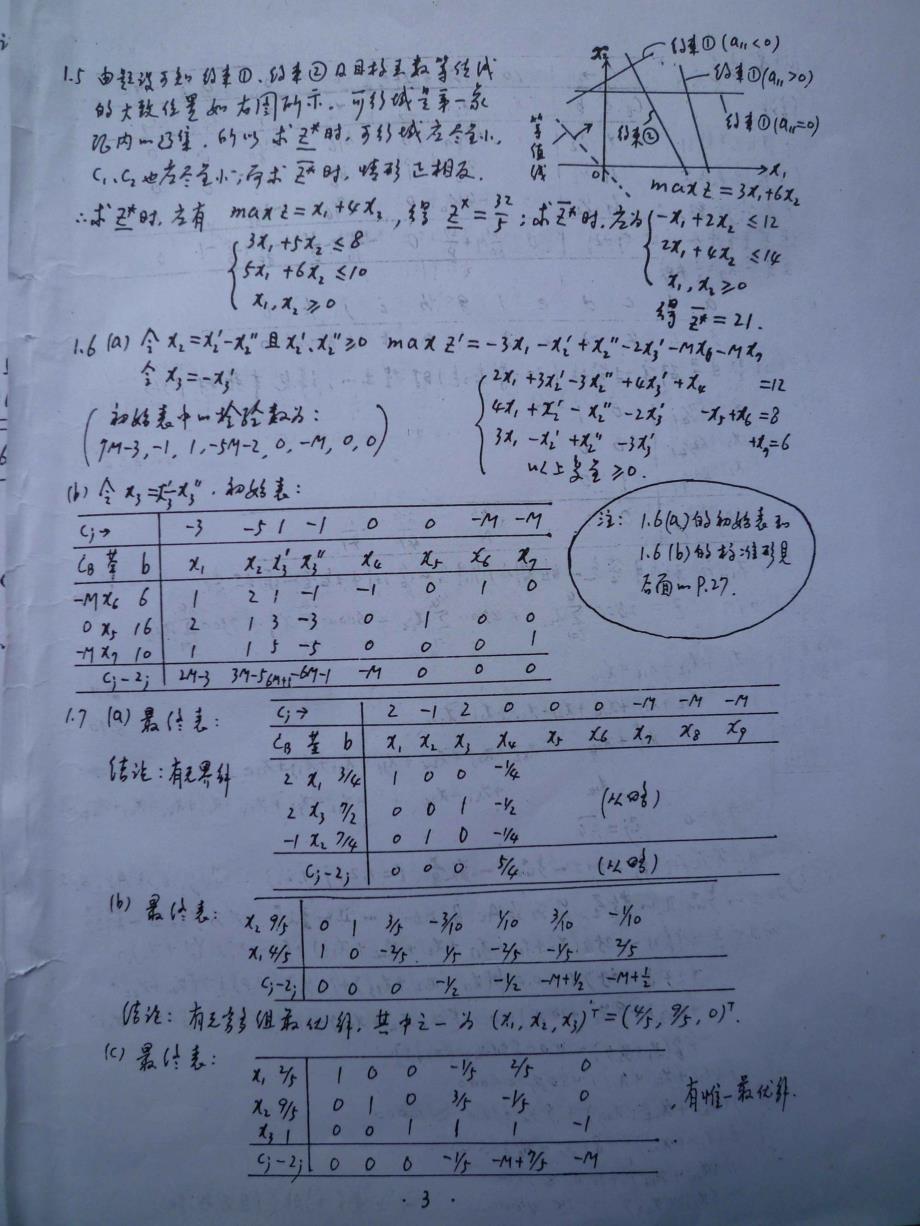 1.5 由题设可知约束①、约束②及目标函数等值线
的大致位置如右图所示. 可行域是第一象
限内的凸集. 所以求z*时, 可行域应尽量小,
C₁、C₂也应尽量小; 而求z̄*时, 情形正相反.
x₂
约束①(a₁₁<0)
约束①(a₁₁>0)
约束①(a₁₁=0)
约束②
等值线
0
x₁
∴求z*时, 应有 max z = x₁+4x₂, 得 z* = 32/5; 求z̄*时, 应为
3x₁+5x₂ ≤8
5x₁+6x₂ ≤10
x₁, x₂ ≥0
max z = 3x₁+6x₂
-x₁+2x₂ ≤12
2x₁+4x₂ ≤14
x₁, x₂ ≥0
得 z̄* = 21.
1.6 (a) 令 x₂=x₂'-x₂'' 且 x₂'、x₂''≥0 max z' = -3x₁-x₂'+x₂''-2x₃'-Mx₆-Mx₇
令 x₃=-x₃'
2x₁+3x₂'-3x₂''+4x₃'+x₄ =12
4x₁+x₂'-x₂''-2x₃' -x₅+x₆=8
3x₁-x₂'+x₂''-3x₃' +x₇=6
以上变量≥0.
(初始表中的检验数为:
7M-3, -1, 1, -5M-2, 0, -M, 0, 0)
(b) 令 x₃=x₃'-x₃''. 初始表:
Cj→ -3 -5 1 -1 0 0 -M -M
CB 基 b x₁ x₂ x₃' x₃'' x₄ x₅ x₆ x₇
-M x₆ 6 1 2 1 -1 -1 0 1 0
0 x₅ 16 2 1 3 -3 0 1 0 0
-M x₇ 10 1 1 5 -5 0 0 0 1
Cj-zj 2M-3 3M-5 6M+1 -6M-1 -M 0 0 0
注: 1.6(a)的初始表和
1.6(b)的标准形见
后面的P.27.
1.7 (a) 最终表:
结论: 有无界解
Cj→ 2 -1 2 0 0 0 -M -M -M
CB 基 b x₁ x₂ x₃ x₄ x₅ x₆ x₇ x₈ x₉
2 x₁ 3/4 1 0 0 -1/4
2 x₃ 7/2 0 0 1 -1/2 (从略)
-1 x₂ 7/4 0 1 0 -1/4
Cj-zj 0 0 0 5/4 (从略)
(b) 最终表:
x₂ 9/5 0 1 3/5 -3/10 1/10 3/10 -1/10
x₁ 4/5 1 0 -2/5 1/5 -2/5 -1/5 2/5
Cj-zj 0 0 0 -1/2 -1/2 -M+1/2 -M+1/2
结论: 有无穷多组最优解, 其中之一为 (x₁, x₂, x₃)ᵀ=(4/5, 9/5, 0)ᵀ.
(c) 最终表:
x₁ 2/5 1 0 0 -1/5 2/5 0
x₂ 9/5 0 1 0 3/5 -1/5 0
x₃ 1 0 0 1 1 1 -1
Cj-zj 0 0 0 -1/5 -M+7/5 -M
有惟一最优解.
· 3 ·